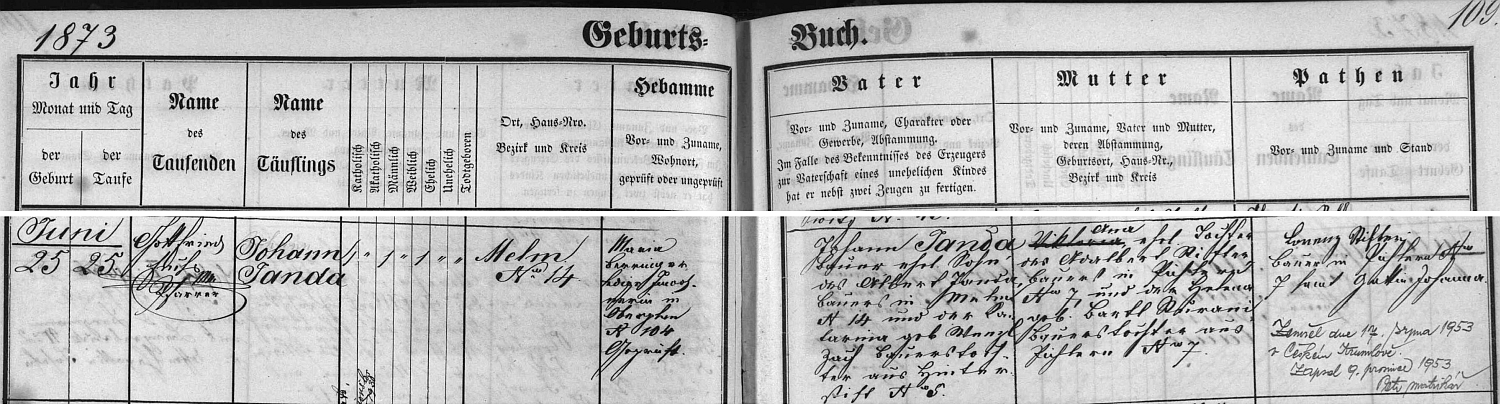 1873
Geburts-
Buch.
109.
Jahr
Monat und Tag
der Geburt
der Taufe
Name
des
Taufenden
Name
des
Täuflings
Katholisch
Akatholisch
Männlich
Weiblich
Ehelich
Unehelich
Todtgeboren
Ort, Haus-Nro.
Bezirk und Kreis
Hebamme
Vor- und Zuname,
Wohnort,
geprüft oder ungeprüft
Vater
Vor- und Zuname, Charakter oder
Gewerbe, Abstammung.
Im Falle des Bekenntnisses des Erzeugers
zur Vaterschaft eines unehelichen Kindes
hat er nebst zwei Zeugen zu fertigen.
Mutter
Vor- und Zuname, Vater und Mutter,
deren Abstammung,
Geburtsort, Haus-Nr.,
Bezirk und Kreis
Pathen
Vor- und Zuname und Stand
Juni
25 25
Gottfried
Pfarrer
Johann
Janda
1 " 1 " 1 " "
Melm
No 14
Maria
in
No 104
Geprüft
Johann Janda
Bauer ehel. Sohn
des Albert Janda
Bauers in Melm
No 14 und der Ka-
tarina geb. Wenzl
Zach Bauerstoch-
ter aus Hinter-
stift No 5.
Viktoria Ana ehel. Tochter
des Adalbert Stifter
Bauers in Pichlern
No 7 und der Helena
geb. Bartl
Bauerstochter aus
Pichlern No 7
Lorenz Stifter
Bauer in Pichlern No
7 samt Gattin Johanna.
Zemřel dne 17. srpna 1953
v Českém Krumlově.
Zapsal 9. prosince 1953
matrikář